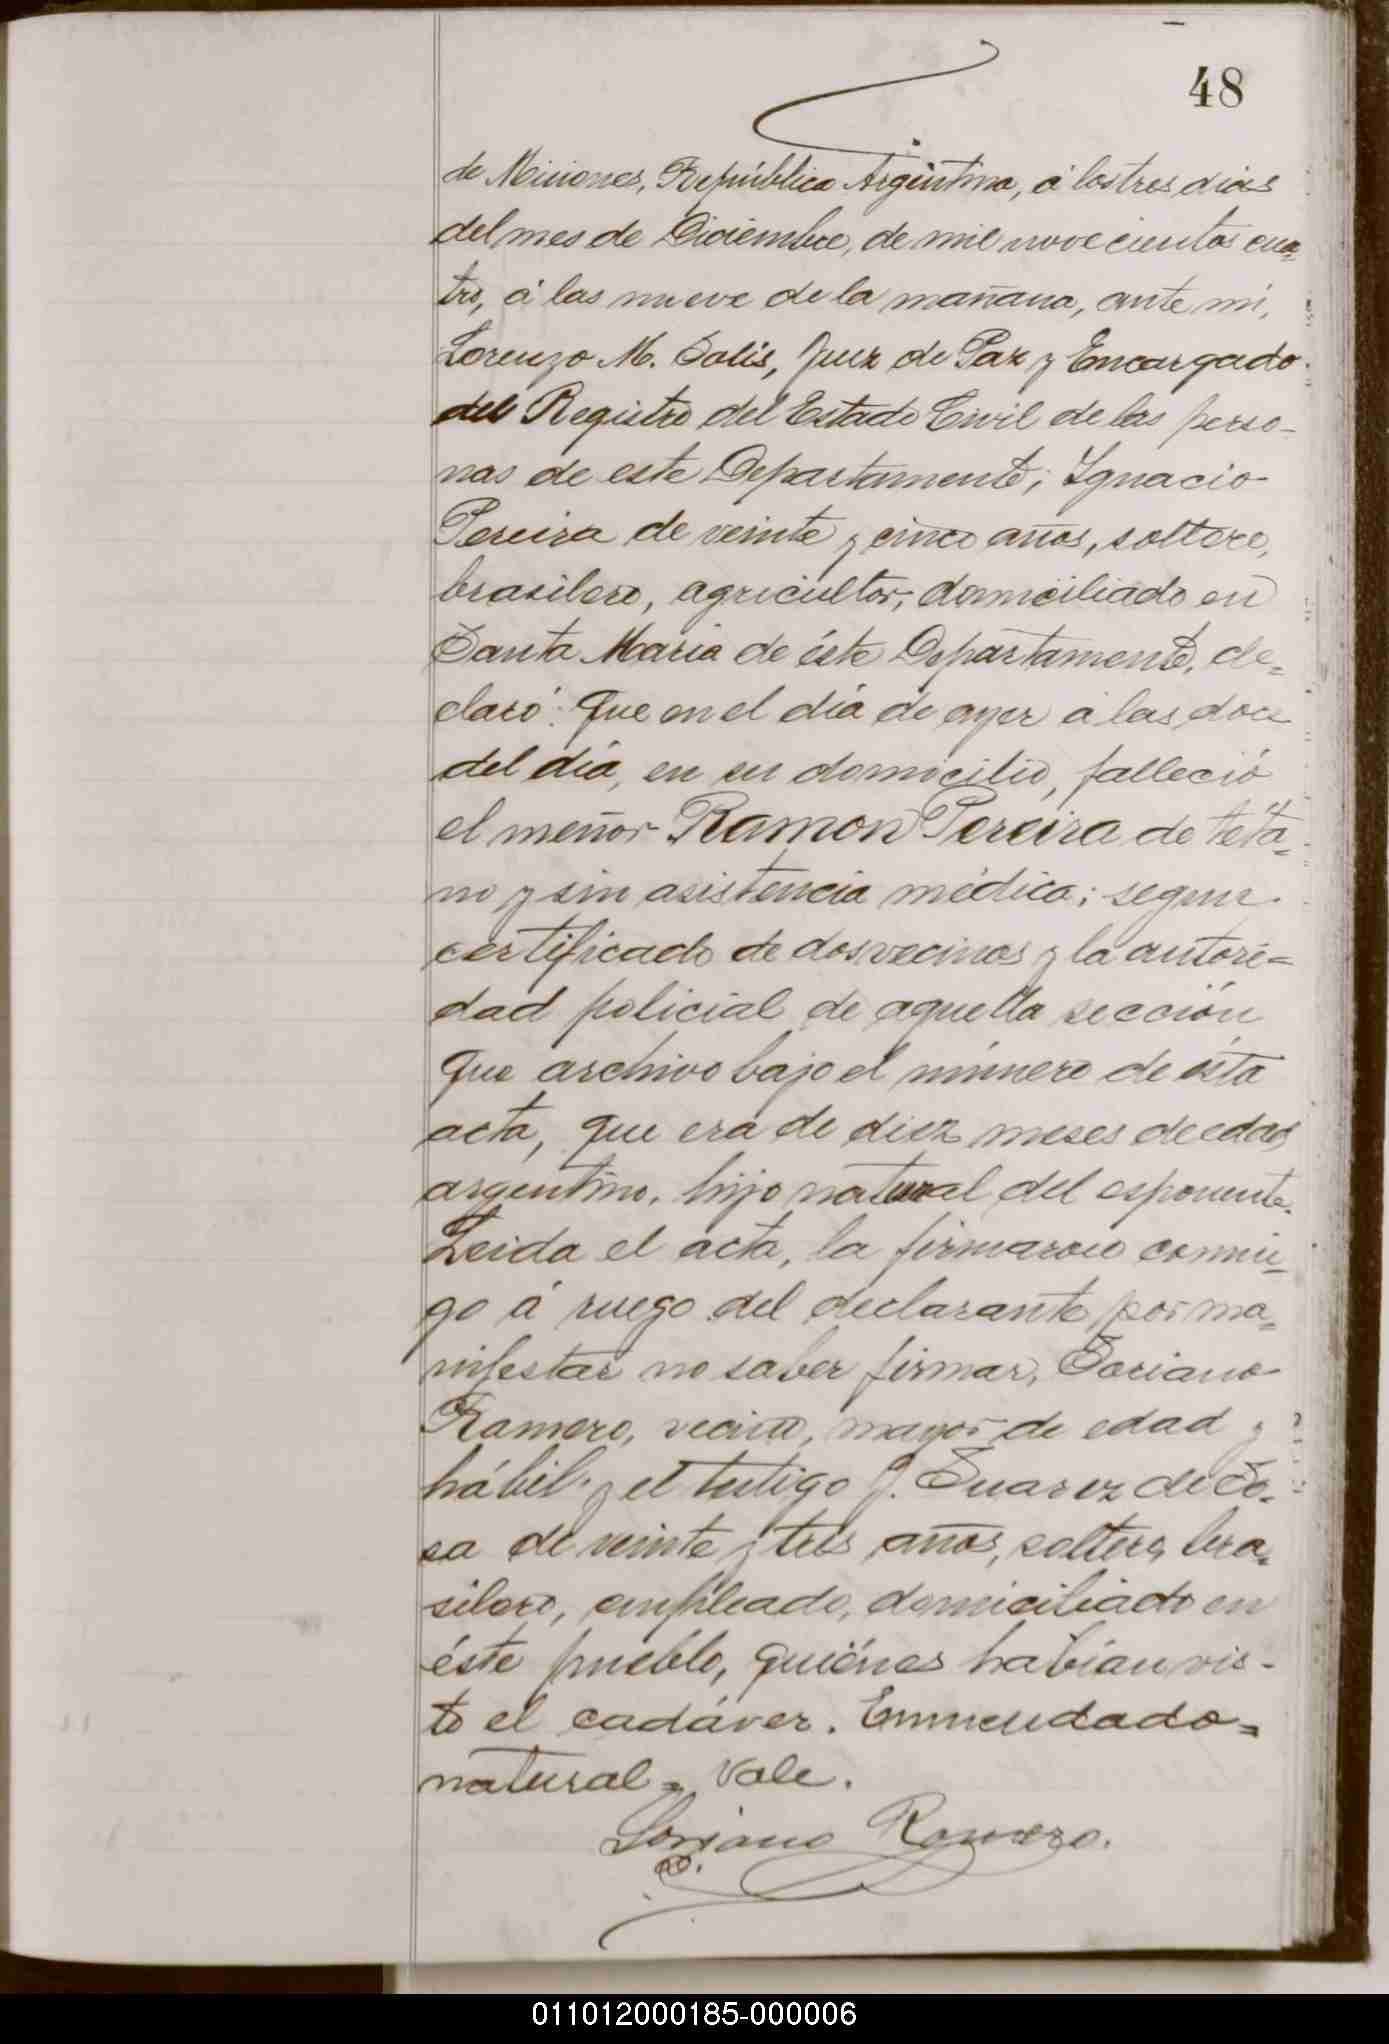 48
de Misiones, República Argentina, á los tres dias
del mes de Diciembre, de mil novecientos cua=
tro, á las nueve de la mañana, ante mi,
Lorenzo M. Solis, Juez de Paz y Encargado
del Registro del Estado Civil de las perso-
nas de este Departamento; Ignacio
Pereira de veinte y cinco años, soltero,
brasilero, agricultor, domiciliado en
Santa Maria de éste Departamento, de=
claró: Que en el día de ayer á las doce
del día, en su domicilio, falleció
el menor Ramon Pereira de téta=
no y sin asistencia médica; segun
certificado de dos vecinos y la autori=
dad policial de aquella sección
que archivo bajo el número de ésta
acta, que era de diez meses de edad,
argentino, hijo natural del esponente.
Leida el acta, la firmaron conmi=
go á ruego del declarante por ma=
nifestar no saber firmar, Soriano
Ramero, vecino, mayor de edad y
hábil y el testigo J. Suarez de So=
sa de veinte y tres años, soltero, bra=
silero, empleado, domiciliado en
éste pueblo, quiénes habían vis-
to el cadáver. Enmendado=
natural= Vale.
Soriano Romero.
011012000185-000006